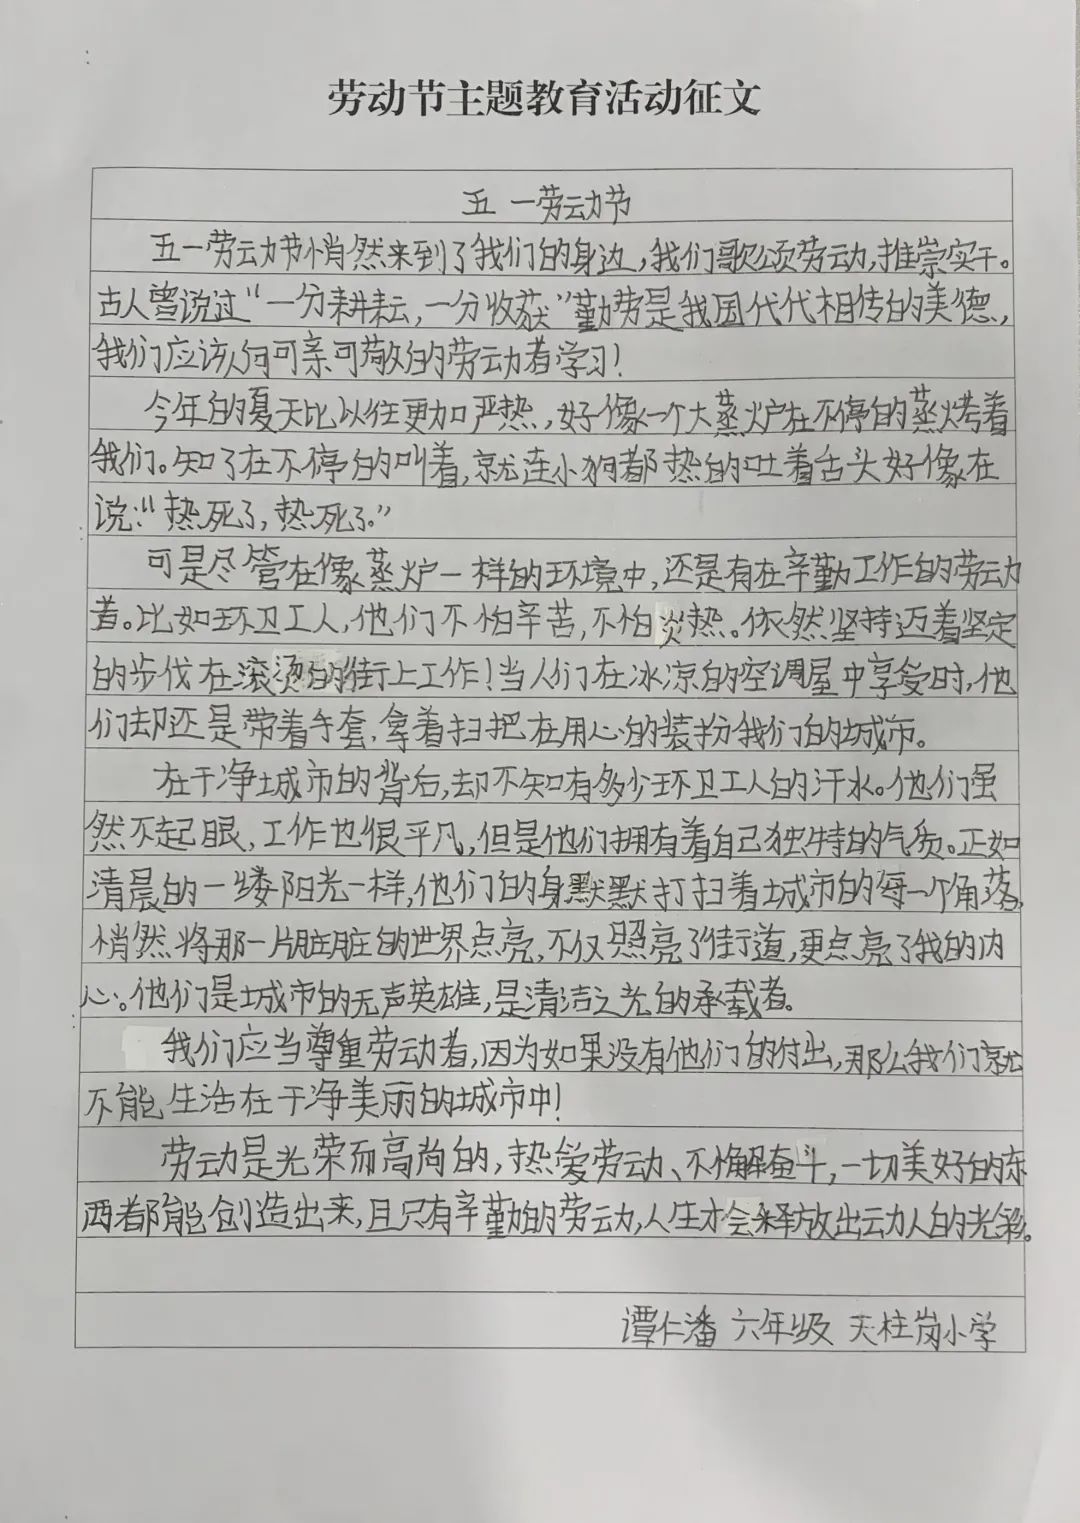 劳动节主题教育活动征文
五一劳动节
五一劳动节悄然来到了我们的身边,我们歌颂劳动,推崇实干。
古人曾说过“一分耕耘,一分收获”勤劳是我国代代相传的美德,
我们应该向可亲可敬的劳动者学习!
今年的夏天比以往更加严热,好像一个大蒸炉在不停的蒸烤着
我们。知了在不停的叫着,就连小狗都热的吐着舌头好像在
说:“热死了,热死了。”
可是尽管在像蒸炉一样的环境中,还是有在辛勤工作的劳动
者。比如环卫工人,他们不怕辛苦,不怕炎热。依然坚持迈着坚定
的步伐在滚烫的街上工作!当人们在冰凉的空调屋中享受时,他
们却还是带着手套,拿着扫把在用心的装扮我们的城市。
在干净城市的背后,却不知有多少环卫工人的汗水。他们虽
然不起眼,工作也很平凡,但是他们拥有着自己独特的气质。正如
清晨的一缕阳光一样,他们的身默默打扫着城市的每一个角落,
悄然将那一片脏脏的世界点亮,不仅照亮了街道,更点亮了我的内
心。他们是城市的无声英雄,是清洁之光的承载者。
我们应当尊重劳动者,因为如果没有他们的付出,那么我们就
不能生活在干净美丽的城市中!
劳动是光荣而高尚的,热爱劳动、不懈奋斗,一切美好的东
西都能创造出来,且只有辛勤的劳动,人生才会释放出动人的光彩。
谭仁潘 六年级 天柱岗小学